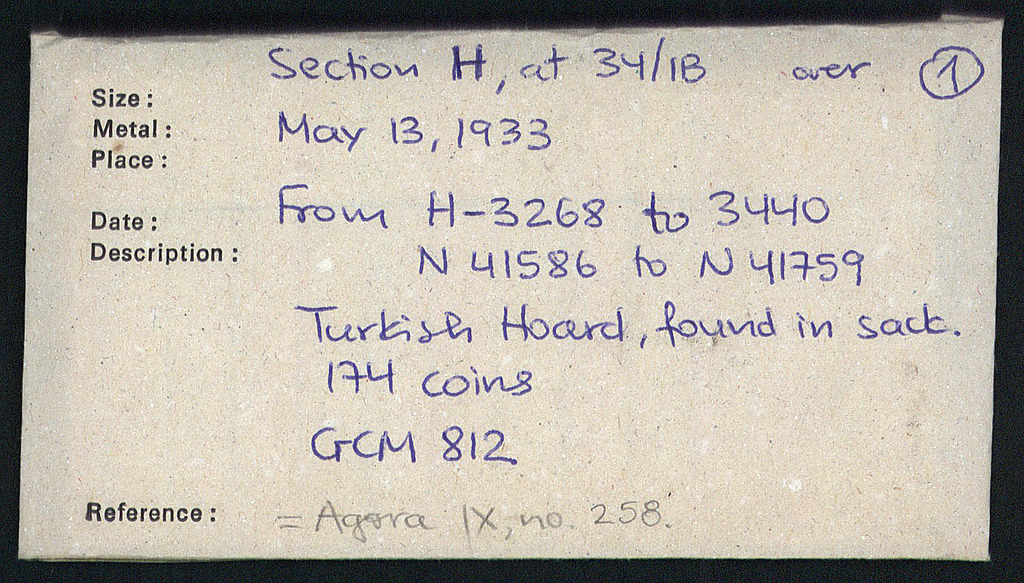 Section H, at 34/1B over 1
Size :
Metal : May 13, 1933
Place :
Date : From H-3268 to 3440
Description : N 41586 to N 41759
Turkish Hoard, found in sack.
174 coins
GCM 812
Reference : = Agora IX, no. 258.